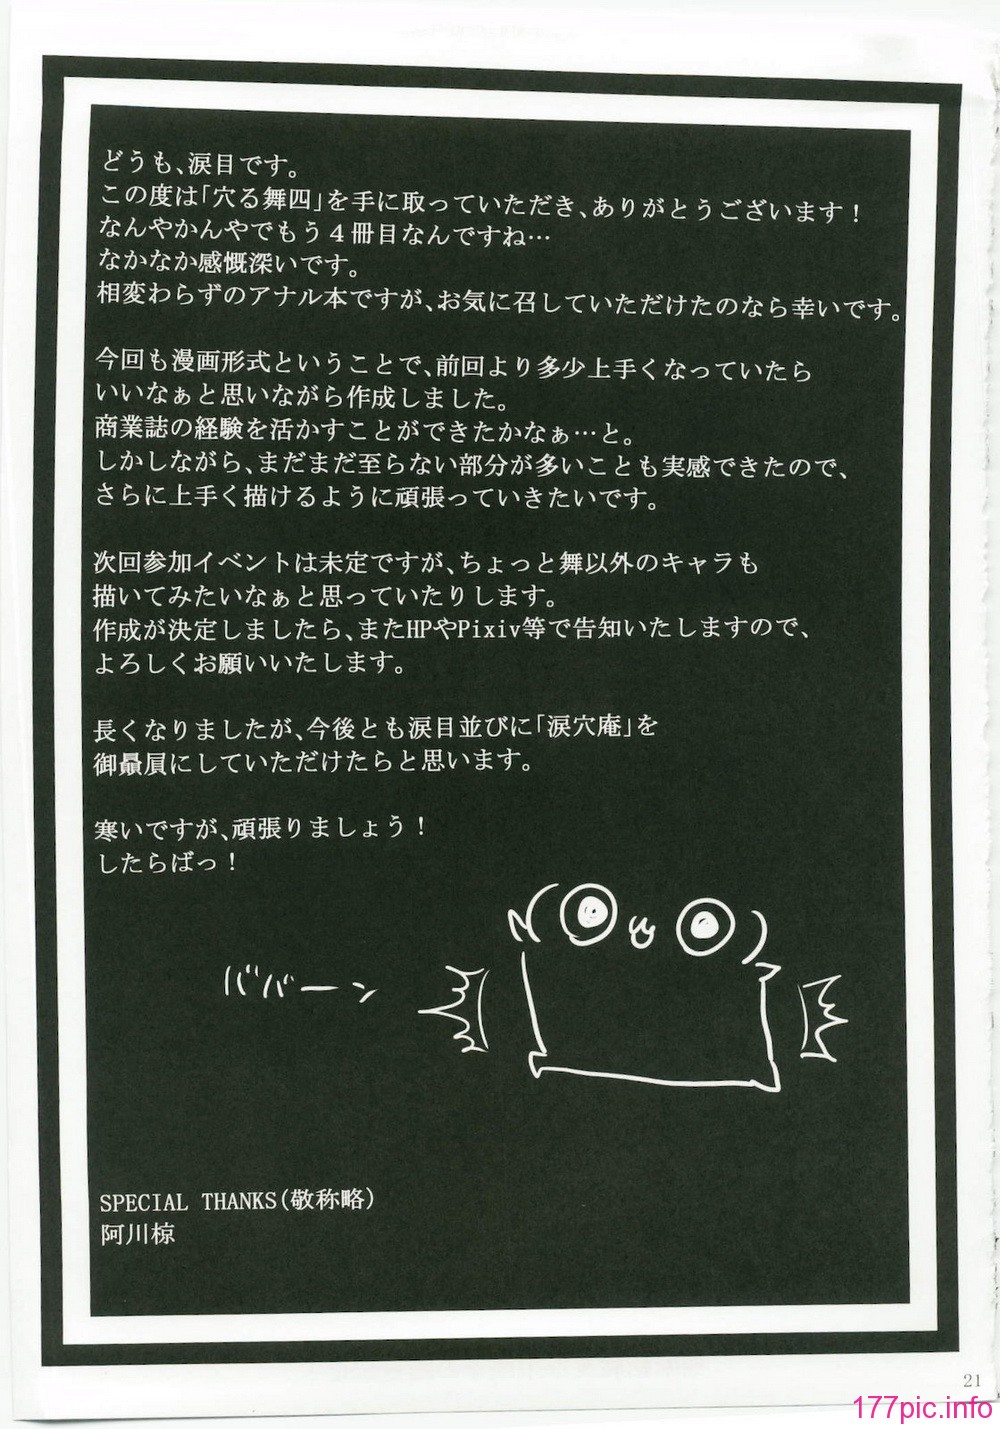 どうも、涙目です。
この度は「穴る舞四」を手に取っていただき、ありがとうございます！
なんやかんやでもう４冊目なんですね…
なかなか感慨深いです。
相変わらずのアナル本ですが、お気に召していただけたのなら幸いです。
今回も漫画形式ということで、前回より多少上手くなっていたら
いいなぁと思いながら作成しました。
商業誌の経験を活かすことができたかなぁ…と。
しかしながら、まだまだ至らない部分が多いことも実感できたので、
さらに上手く描けるように頑張っていきたいです。
次回参加イベントは未定ですが、ちょっと舞以外のキャラも
描いてみたいなぁと思っていたりします。
作成が決定しましたら、またHPやPixiv等で告知いたしますので、
よろしくお願いいたします。
長くなりましたが、今後とも涙目並びに「涙穴庵」を
御贔屓にしていただけたらと思います。
寒いですが、頑張りましょう！
したらばっ！
ババーン
SPECIAL THANKS(敬称略)
阿川椋
21
177pic.info